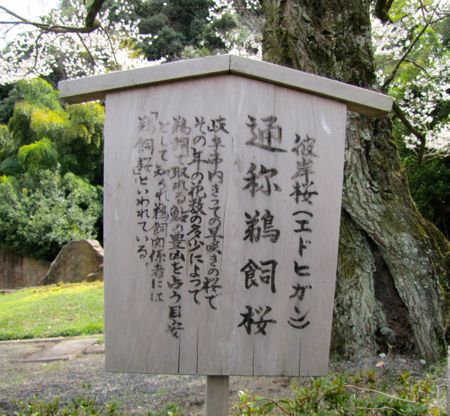 彼岸桜（エドヒガン）
通称鵜飼桜
岐阜市内きっての早咲きの桜で
その年の花数の多少によって
鵜飼で取れる鮎の豊凶を占う目安
として知られ鵜飼関係者には
「鵜飼桜」といわれている。